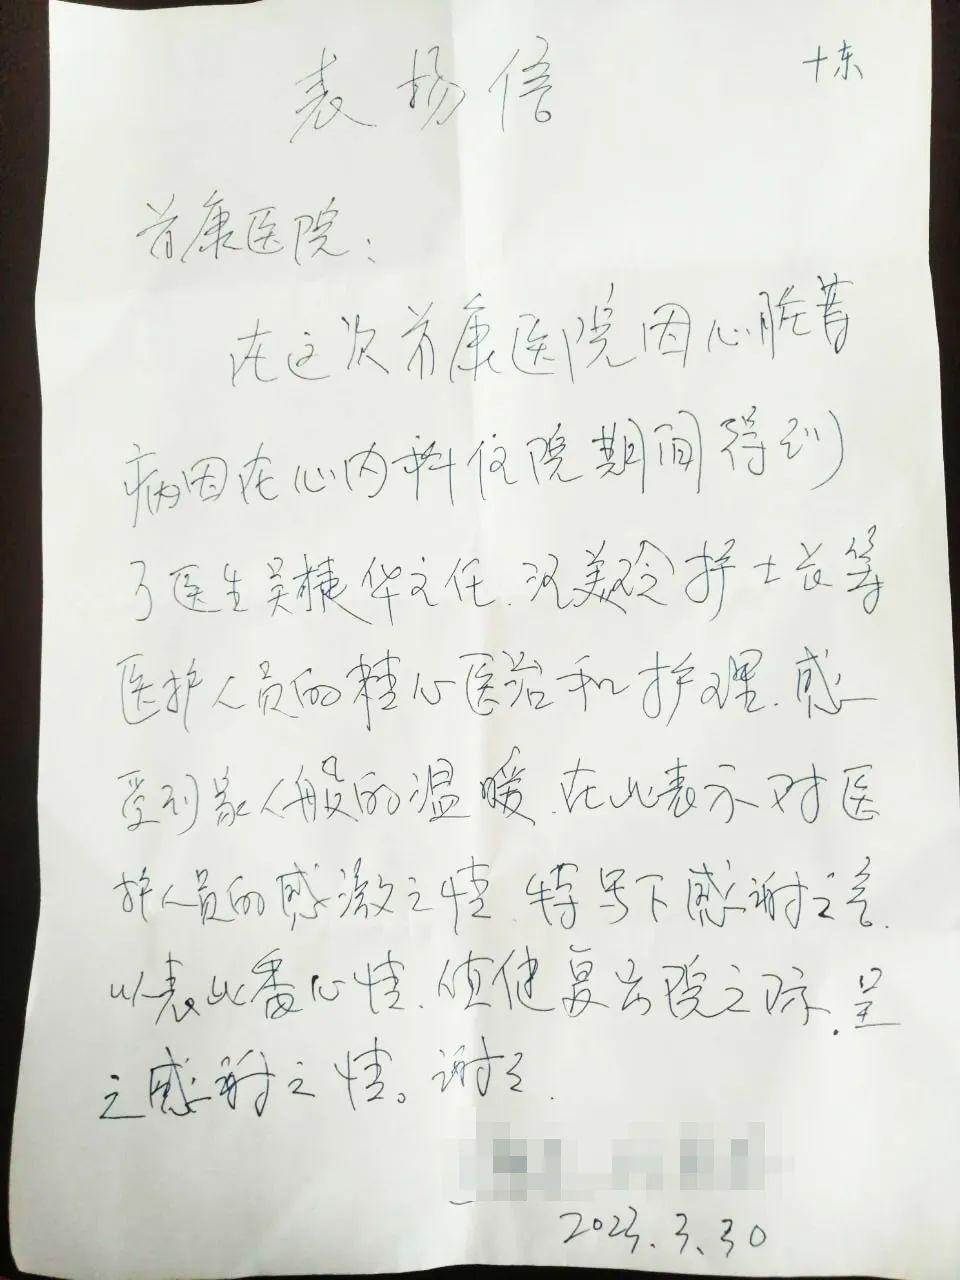 十东
表扬信
首康医院:
在这次首康医院因心脏着
病因在心内科住院期间得到
了医生吴楗华主任.沉美玲护士长等
医护人员的精心医治和护理.感
受到家人般的温暖.在此表示对医
护人员的感激之情.特写下感谢之言.
以表此番心情.值健复出院之际.呈
之感谢之情。谢之.
2023.3.30